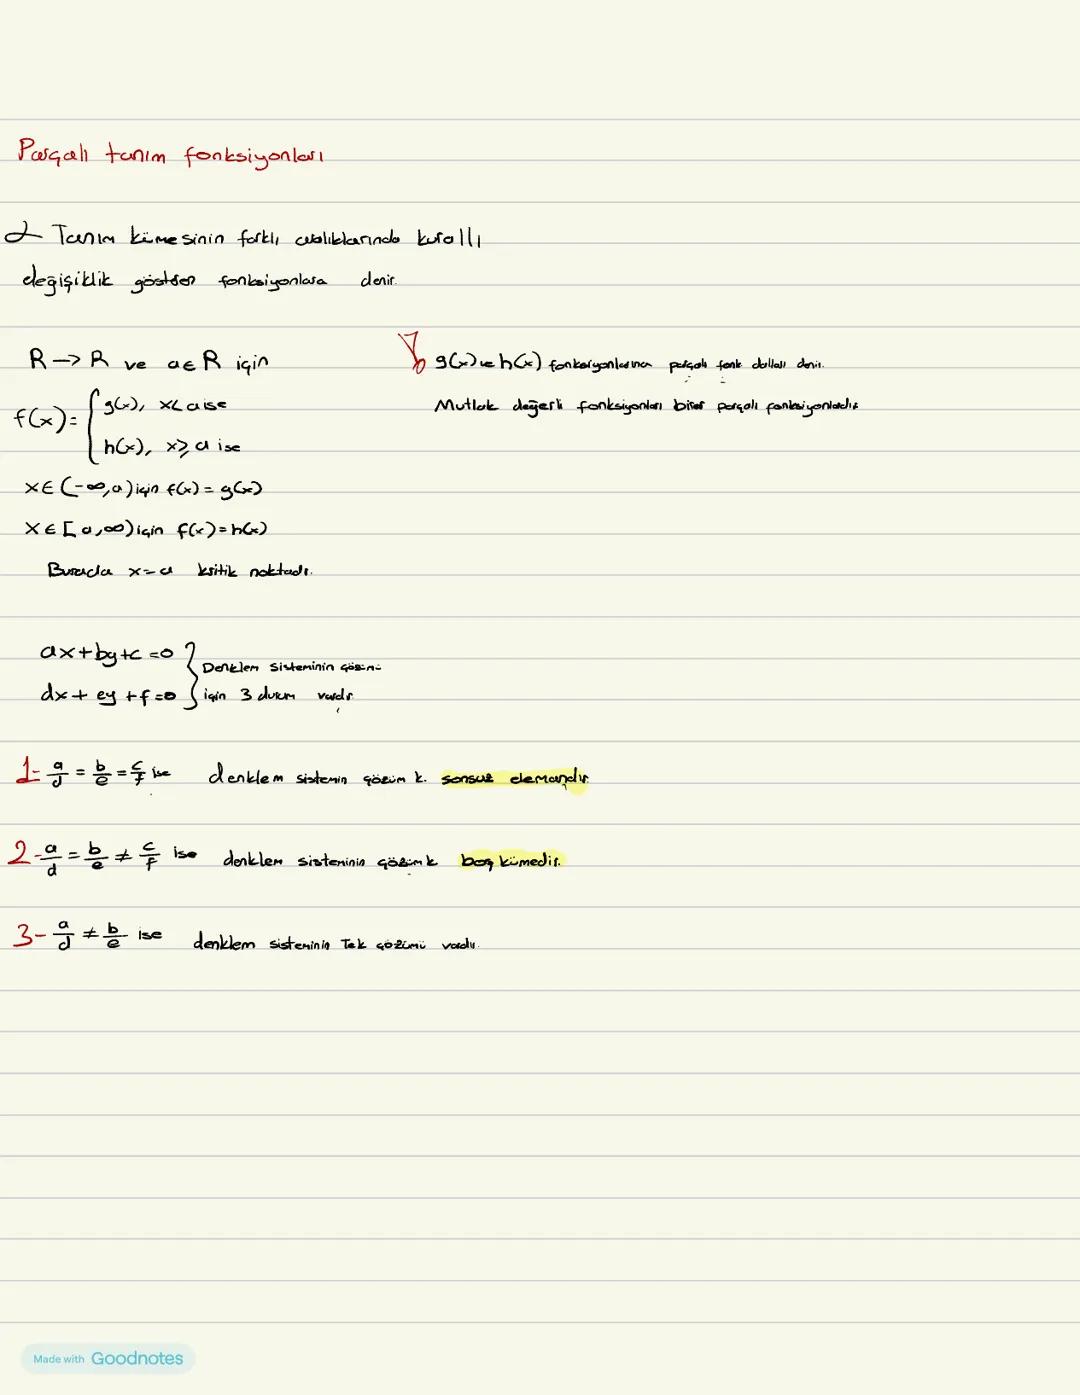 Parçalı tanım fonksiyonları
Tanım kümesinin farklı aralıklarında kurallı
değişiklik gösteren fonksiyonlara denir.
R → R ve a ∈ R için
f(x) = { g(x), x < a ise
h(x), x ≥ a ise
x ∈ (-∞, a) için f(x) = g(x)
x ∈ [a, ∞) için f(x) = h(x)
Burada x = a kritik noktadı.
! g(x) ve h(x) fonksiyonlarına parçalı fonk dalları denir.
Mutlak değerli fonksiyonları birer parçalı fonksiyonladır
ax + by + c = 0 } Denklem sisteminin çözümü
dx + ey + f = 0 } için 3 durum vardır
1- a/d = b/e = c/f ise denklem sistemin çözüm k. sonsuz elemandır.
2- a/d = b/e ≠ c/f ise denklem sisteminin çözüm k boş kümedir.
3- a/d ≠ b/e ise denklem sisteminin Tek çözümü vardır.
Made with Goodnotes